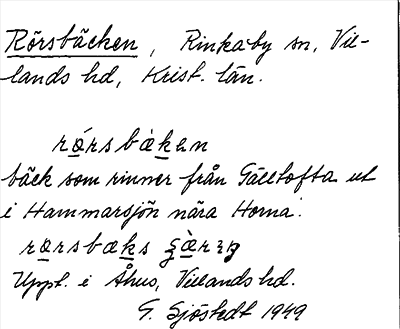 Rörsbäcken, Rinkaby sn, Vil-
lands hd, Krist. län.
rórsbàken
bäck som rinner från Gälltofta ut
i Hammarsjön nära Horna.
rorsbæks
Uppt. i Åhus, Villands hd.
G. Sjöstedt 1949